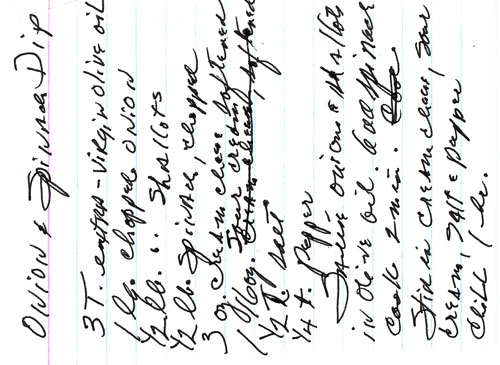 ONION & Spinach Dip
3 T. extra-virgin olive oil
1 lg. chopped ONION
1/2 lb. " Shallots
1/2 lb. Spinach, chopped
3 oz. cream cheese softened
1 Sour cream
1/2 t. salt
1/4 t. Pepper
onions & shallots
in olive oil. Add spinach
cook 2 min.
Stir in cream cheese, sour
cream, salt & pepper
Chill 1 hr.